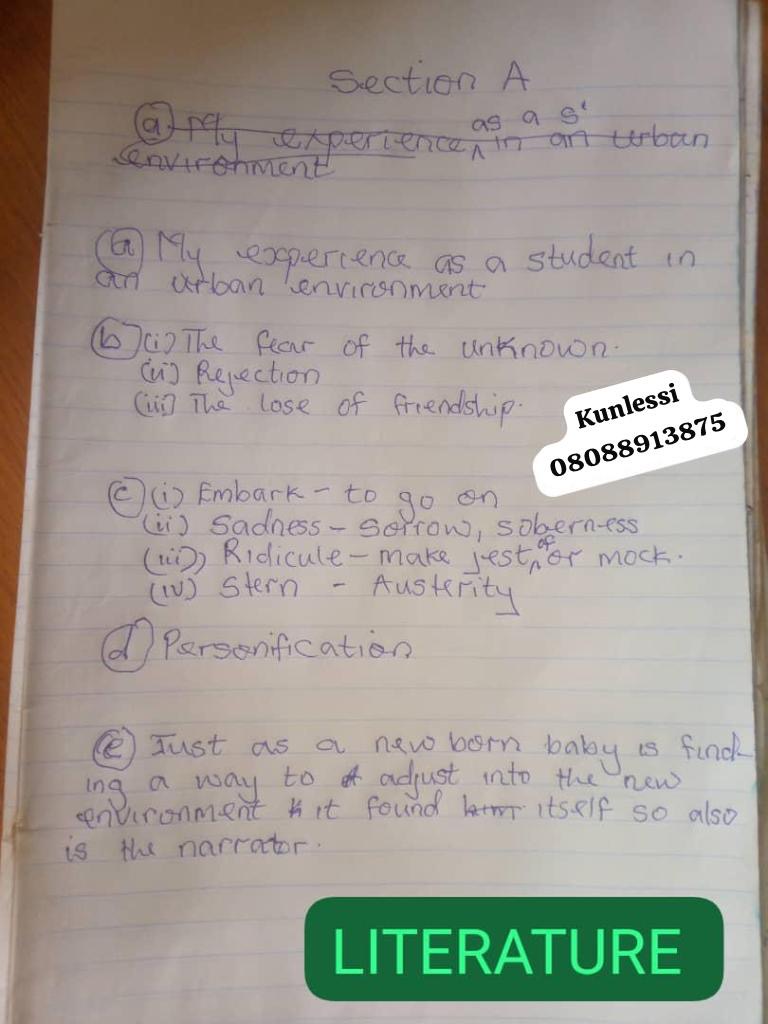 Section A
as a s'
(a) My experience ^ in an urban
environment
(a) My experience as a student in
an urban environment
(b) (i) The fear of the unknown.
(ii) Rejection
(iii) The lose of friendship.
Kunlessi
08088913875
(c) (i) Embark - to go on
(ii) Sadness - Sorrow, soberness
of
(iii) Ridicule - make jest ^ or mock.
(iv) Stern - Austerity
(d) Personification
(e) Just as a new born baby is find
ing a way to adjust into the new
environment it found itself so also
is the narrator.
LITERATURE